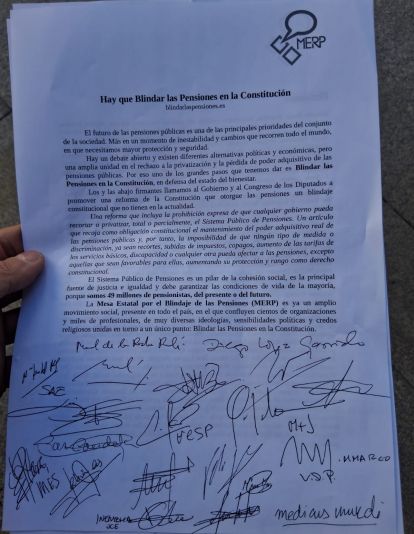 MERP
Hay que Blindar las Pensiones en la Constitución
blindarlaspensiones.es
El futuro de las pensiones públicas es una de las principales prioridades del conjunto
de la sociedad. Más en un momento de inestabilidad y cambios que recorren todo el mundo,
en que necesitamos mayor protección y seguridad.
Hay un debate abierto y existen diferentes alternativas políticas y económicas, pero
una amplia unidad en el rechazo a la privatización y la pérdida de poder adquisitivo de las
pensiones públicas. Por eso uno de los grandes pasos que tenemos dar es Blindar las
Pensiones en la Constitución, en defensa del estado del bienestar.
Los y las abajo firmantes llamamos al Gobierno y al Congreso de los Diputados a
promover una reforma de la Constitución que otorgue las pensiones un blindaje
constitucional que no tienen en la actualidad.
Una reforma que incluya la prohibición expresa de que cualquier gobierno pueda
recortar o privatizar, total o parcialmente, el Sistema Público de Pensiones. Un artículo
que recoja como obligación constitucional el mantenimiento del poder adquisitivo real de
las pensiones públicas y, por tanto, la imposibilidad de que ningún tipo de medida o
discriminación, ya sean recortes, subidas de impuestos, copagos, aumento de las tarifas de
los servicios básicos, discapacidad o cualquier otra pueda afectar a las pensiones, excepto
aquellas que sean favorables para ellas, aumentando su protección y rango como derecho
constitucional.
El Sistema Público de Pensiones es un pilar de la cohesión social, es la principal
fuente de justicia e igualdad y debe garantizar las condiciones de vida de la mayoría,
porque somos 49 millones de pensionistas, del presente o del futuro.
La Mesa Estatal por el Blindaje de las Pensiones (MERP) es ya un amplio
movimiento social, presente en todo el país, en el que confluyen cientos de organizaciones
y miles de profesionales, de muy diversas ideologías, sensibilidades políticas y credos
religiosos unidas en torno a un único punto: Blindar las Pensiones en la Constitución.
Diego López Garrido
SAE
M+J
MARCO
V.D.P.
MES
medicus mundi